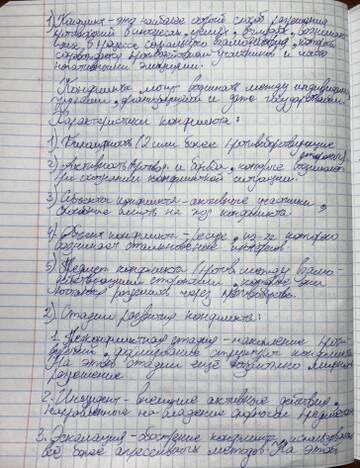 1) Конфликт - это наиболее острый способ разрешения
противоречий в интересах, целях, взглядах, возникаю-
щих в процессе социального взаимодействия
участников и
негативными эмоциями.
Конфликты могут возникать между индивидами,
группами, организациями и даже государствами.
Характеристики конфликта:
1) Биполярность (2 или более противоборствующие
стороны)
2) Активность и борьба, которые возникают
при осознании конфликтной ситуации.
3) Субъекты конфликта - активные участники,
способные влиять на ход конфликта.
4) Объект конфликта - ресурс, из-за которого
возникает столкновение интересов
5) Предмет конфликта между взаимо-
действующими сторонами, которое они
пытаются разрешить через противоборство.
2) Стадии развития конфликта:
1. Предконфликтная стадия - накопление проти-
воречий, формирование структуры конфликта.
На этой стадии ещё возможно мирное
разрешение
2. Инцидент - внешние активные действия,
направленные на владение спорным предметом
3. Эскалация - обострение конфликта, использование
всё более агрессивных методов. На этой